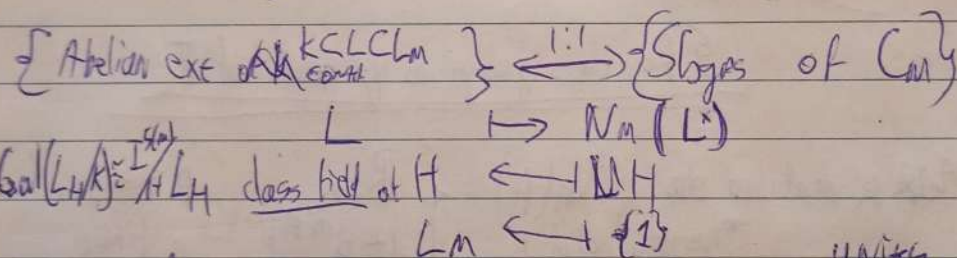 { Abelian ext K⊂L⊂L_m } ⟷ 1:1 { Sbgps of C_m }
L ↦ Nm(L^×)
Gal(L_H/K) ≅ I^{S(m)}/H L_H class field of H ↤ H
L_m ↤ {1}